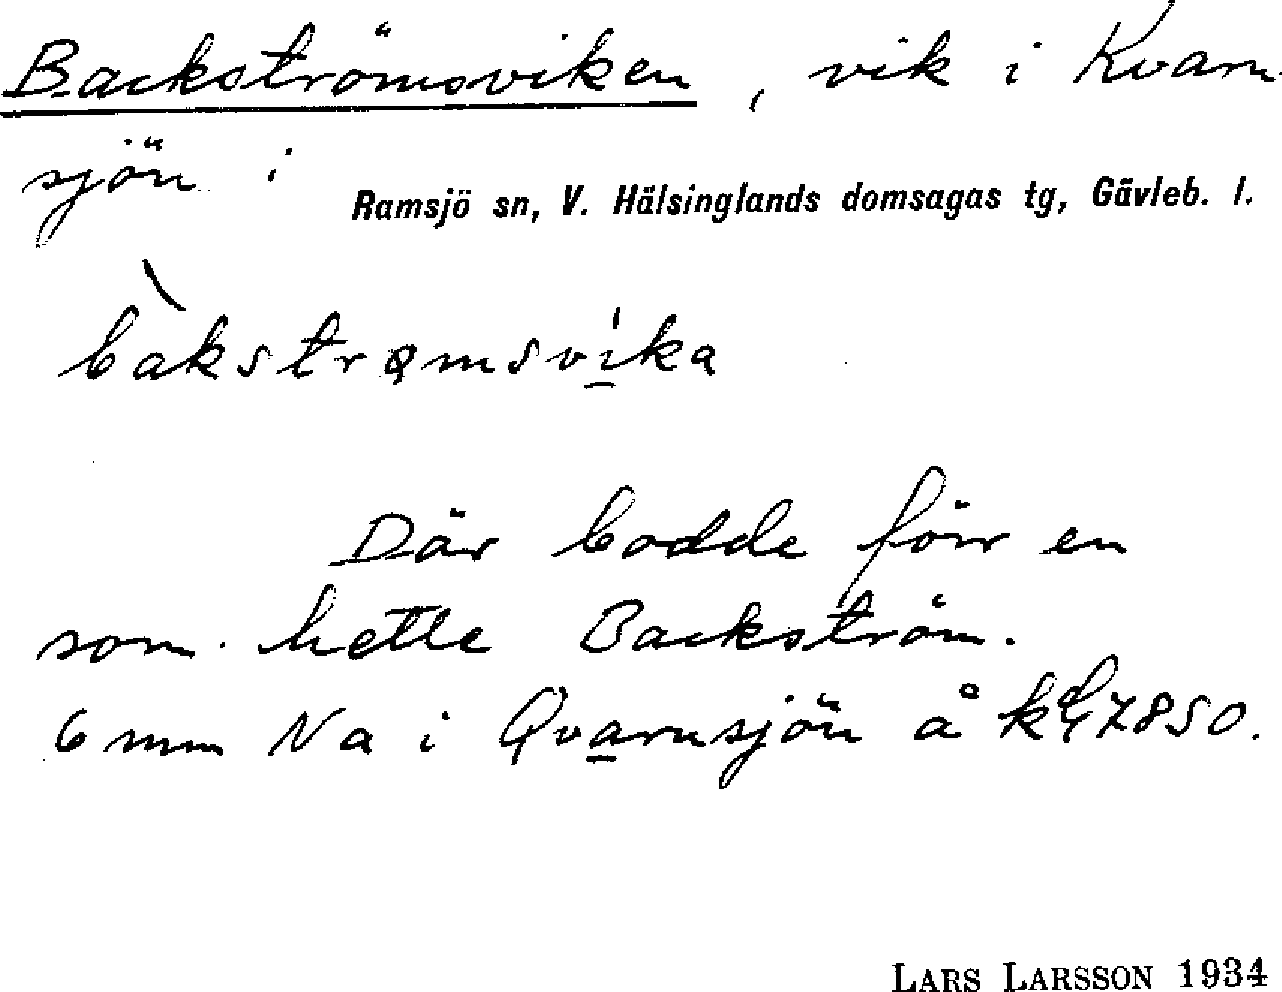 Backströmsviken, vik i Kvarn-
sjön i
Ramsjö sn, V. Hälsinglands domsagas tg, Gävleb. l.
bàkstrømsvi̱ka
Där bodde förr en
som hette Backström.
6 mm Na i Qva̱rnsjön å 7850.
LARS LARSSON 1934